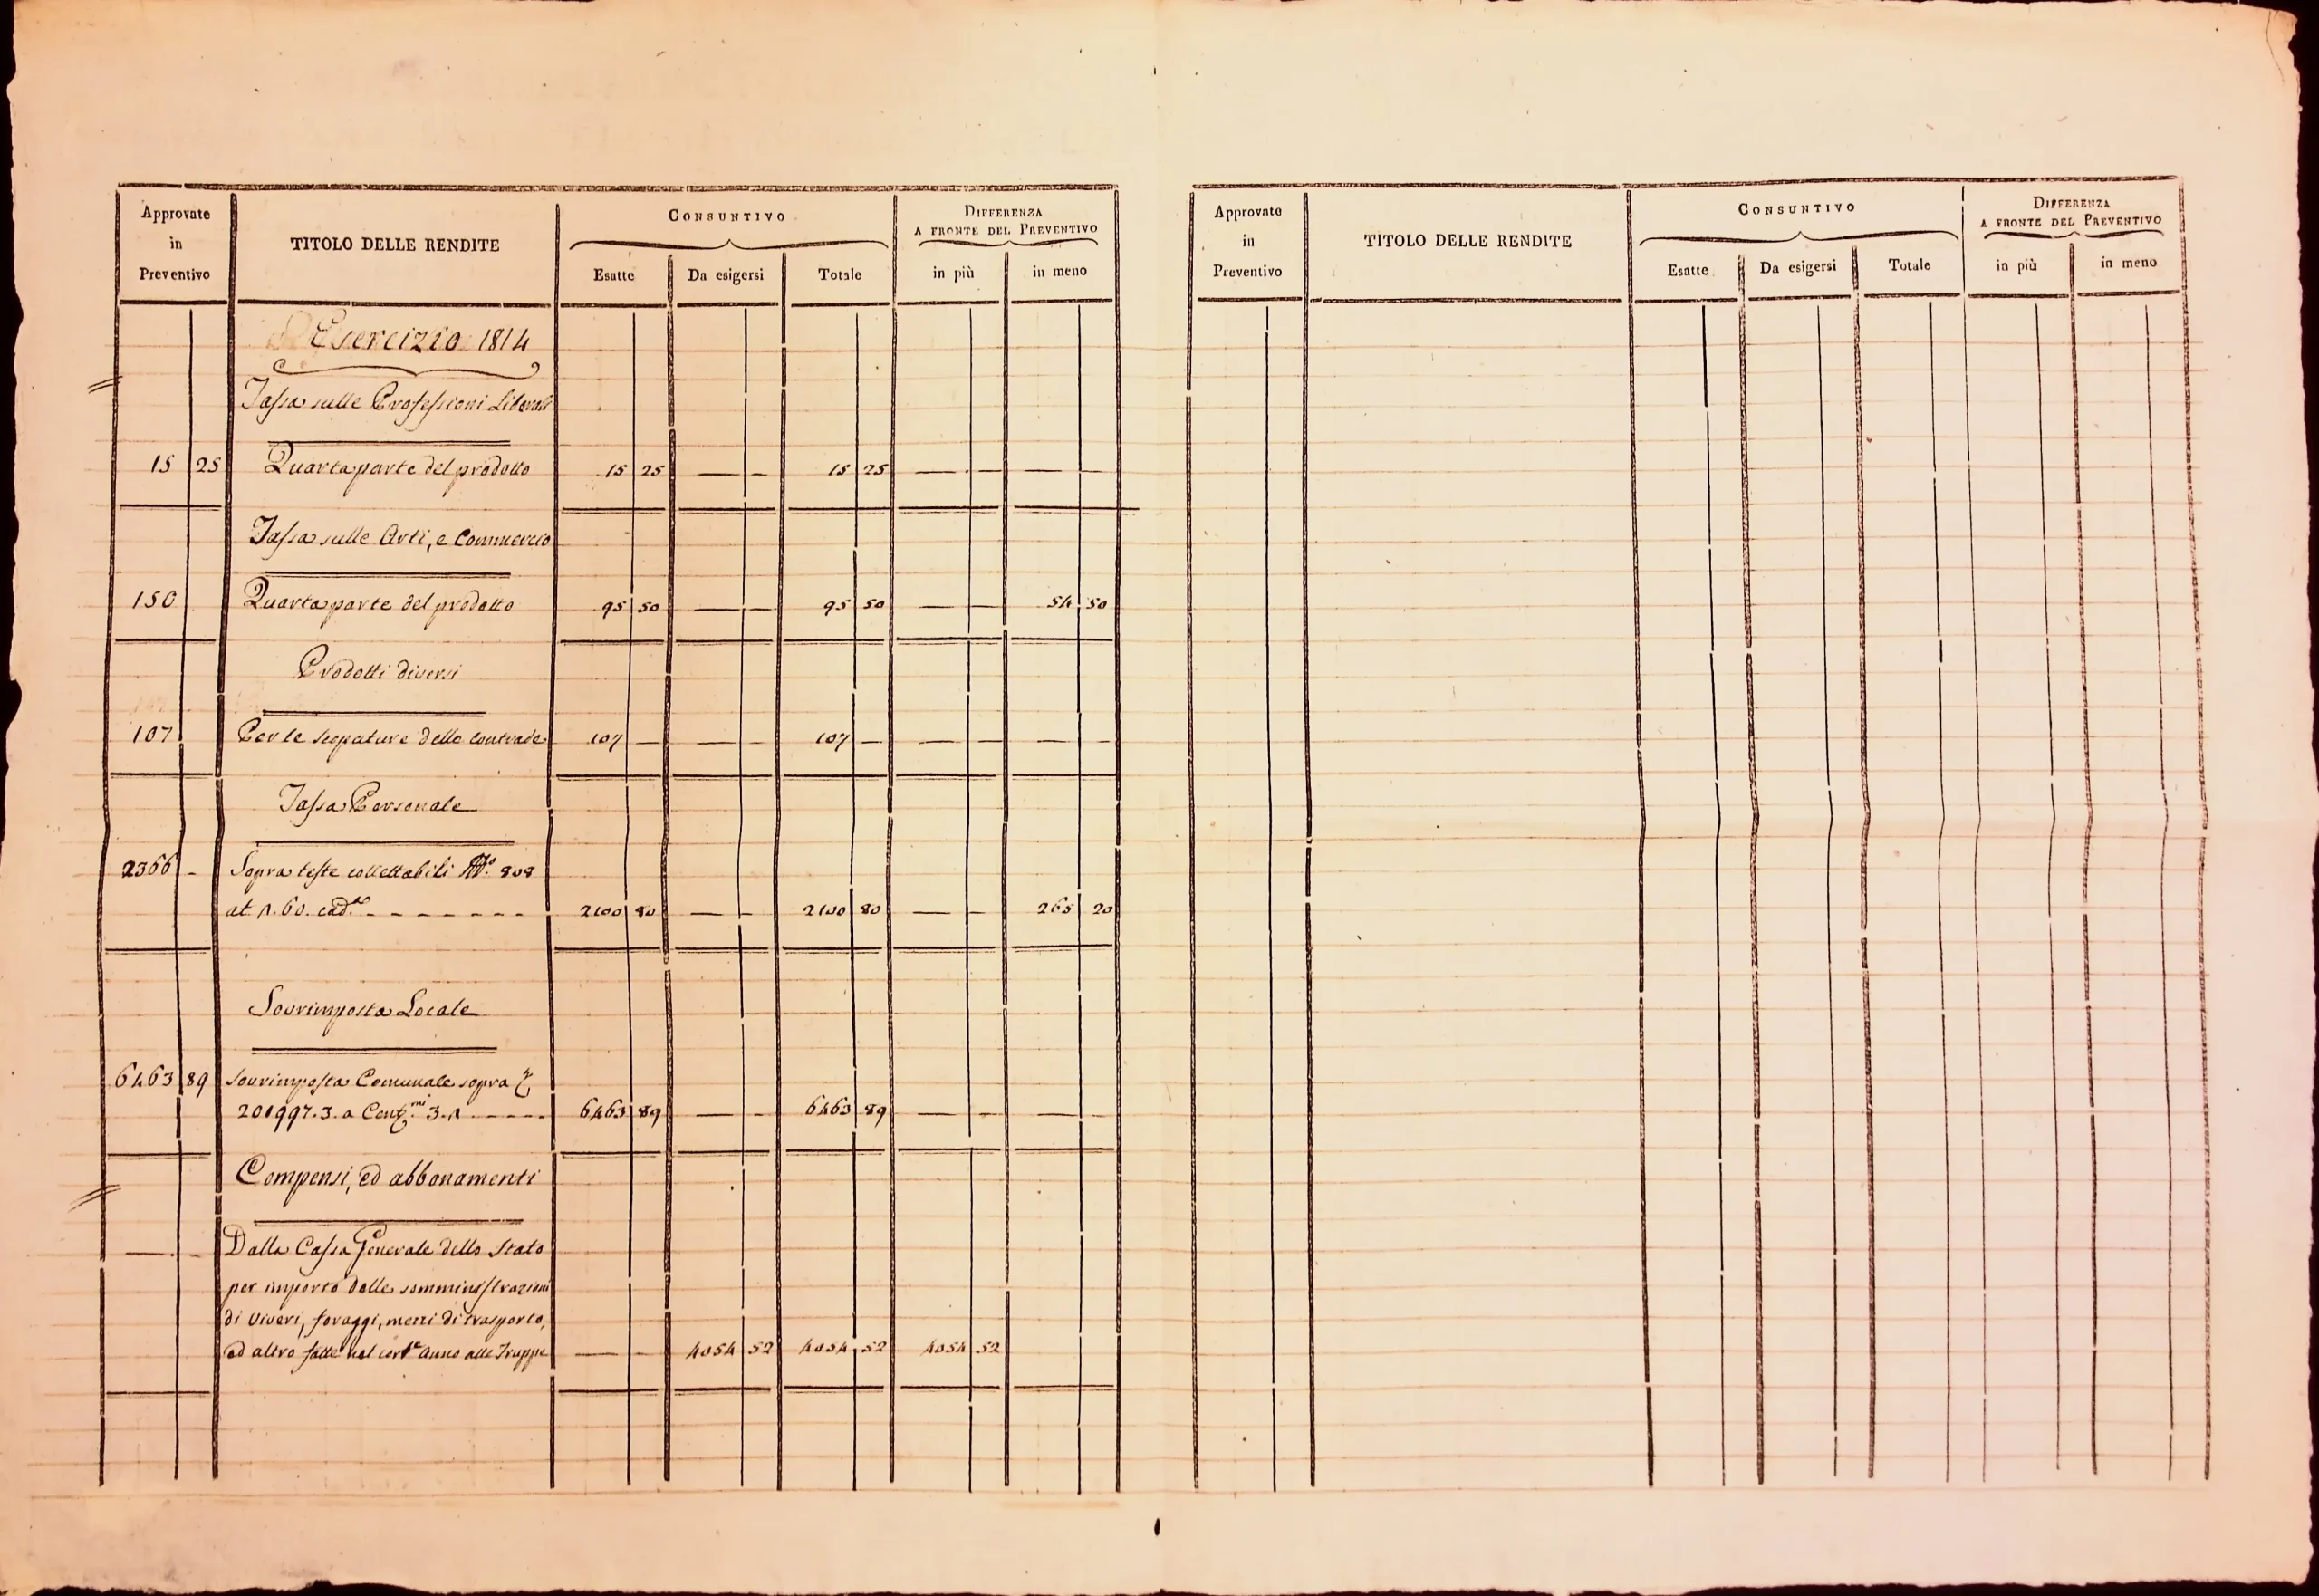 Approvate in Preventivo
TITOLO DELLE RENDITE
CONSUNTIVO
Esatte Da esigersi Totale
DIFFERENZA
A FRONTE DEL PREVENTIVO
in più in meno
Esercizio 1814
Tassa sulle Professioni Liberali
15 25 Quarta parte del prodotto 15 25 — - 15 25 — - — -
Tassa sulle Arti, e Commercio
150 Quarta parte del prodotto 95 50 — - 95 50 — - 54 50
Prodotti diversi
107 Per le scopature delle contrade 107 — — - 107 — — - — -
Tassa Personale
2366 - Sopra teste collettabili N.° 808
at 2.60. cad.a - - - - - - - 2100 80 — - 2100 80 — - 265 20
Sovrimposta Locale
6463 89 Sovrimposta Comunale sopra
201997.3. a Cent.mi 3.2 - - - - - 6463 89 — - 6463 89 — - — -
Compensi, ed abbonamenti
— - Dalla Cassa Generale dello Stato
per importo delle somministrazioni
di viveri, foraggi, mezzi di trasporto,
ed altro fatte nel corr.e Anno alle Truppe — - 4054 52 4054 52 4054 52
Approvate in Preventivo
TITOLO DELLE RENDITE
CONSUNTIVO
Esatte Da esigersi Totale
DIFFERENZA
A FRONTE DEL PREVENTIVO
in più in meno